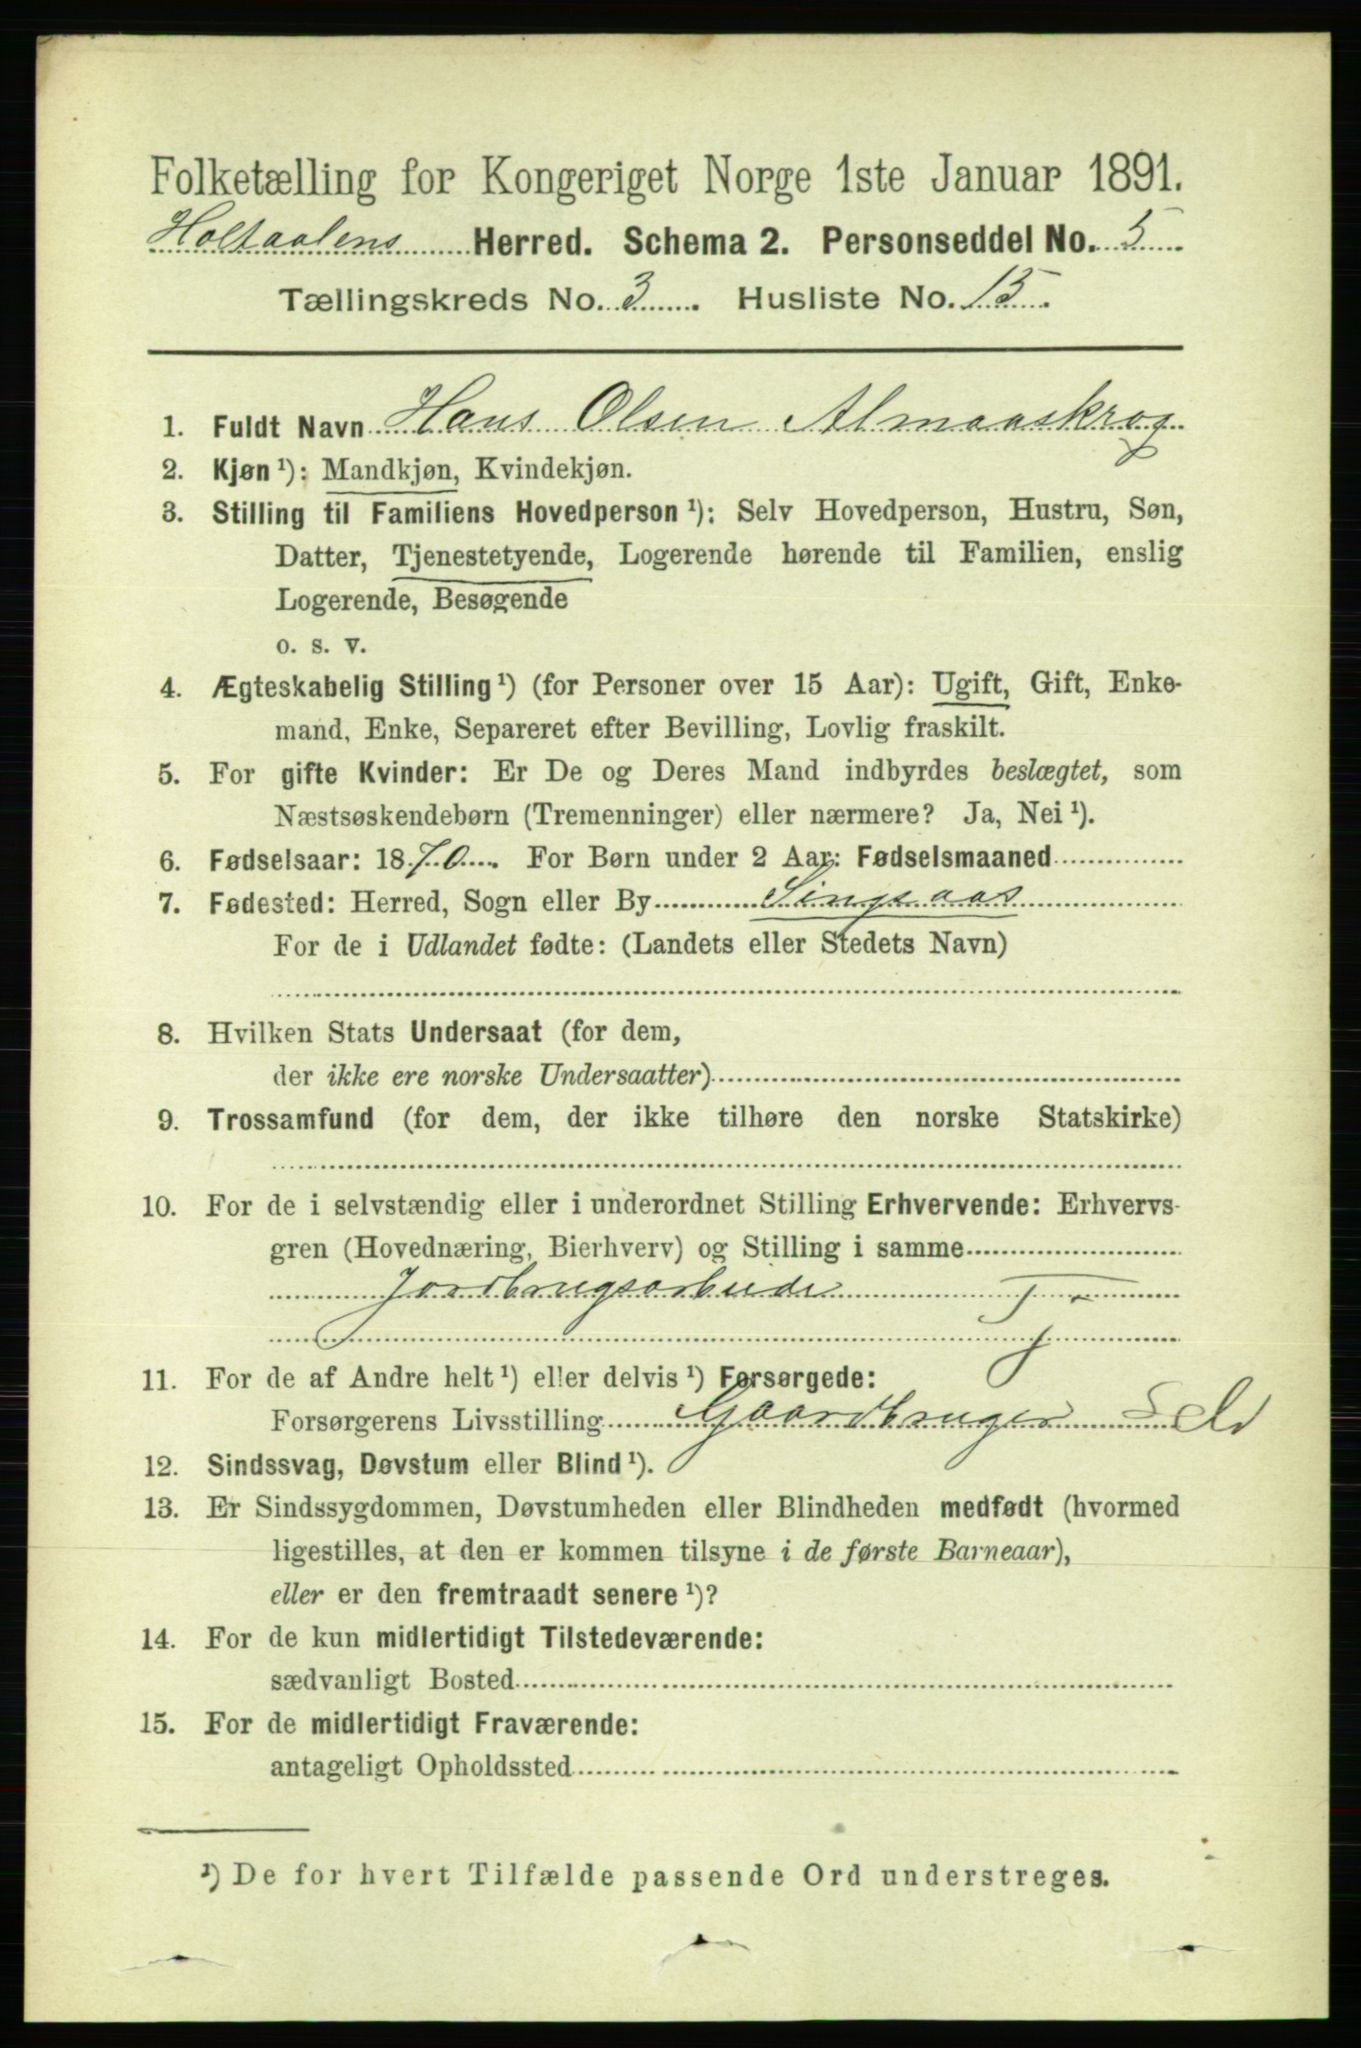 Folketælling for Kongeriget Norge 1ste Januar 1891.
Holtaalens Herred. Schema 2. Personseddel No. 5
Tællingskreds No. 3. Husliste No. 15.
1. Fuldt Navn Hans Olsen Almaaskrog
2. Kjøn ¹): Mandkjøn, Kvindekjøn.
3. Stilling til Familiens Hovedperson ¹): Selv Hovedperson, Hustru, Søn,
Datter, Tjenestetyende, Logerende hørende til Familien, enslig
Logerende, Besøgende
o. s. v.
4. Ægteskabelig Stilling ¹) (for Personer over 15 Aar): Ugift, Gift, Enke-
mand, Enke, Separeret efter Bevilling, Lovlig fraskilt.
5. For gifte Kvinder: Er De og Deres Mand indbyrdes beslægtet, som
Næstsøskendebørn (Tremenninger) eller nærmere? Ja, Nei ¹).
6. Fødselsaar: 1870. For Børn under 2 Aar: Fødselsmaaned
7. Fødested: Herred, Sogn eller By Singsaas
For de i Udlandet fødte: (Landets eller Stedets Navn)
8. Hvilken Stats Undersaat (for dem,
der ikke ere norske Undersaatter)
9. Trossamfund (for dem, der ikke tilhøre den norske Statskirke)
10. For de i selvstændig eller i underordnet Stilling Erhvervende: Erhvervs-
gren (Hovednæring, Bierhverv) og Stilling i samme
Jordbrugsarbeide T
11. For de af Andre helt ¹) eller delvis ¹) Forsørgede:
Forsørgerens Livsstilling Gaardbruger Selv
12. Sindssvag, Døvstum eller Blind ¹).
13. Er Sindssygdommen, Døvstumheden eller Blindheden medfødt (hvormed
ligestilles, at den er kommen tilsyne i de første Barneaar),
eller er den fremtraadt senere ¹)?
14. For de kun midlertidigt Tilstedeværende:
sædvanligt Bosted
15. For de midlertidigt Fraværende:
antageligt Opholdssted
¹) De for hvert Tilfælde passende Ord understreges.